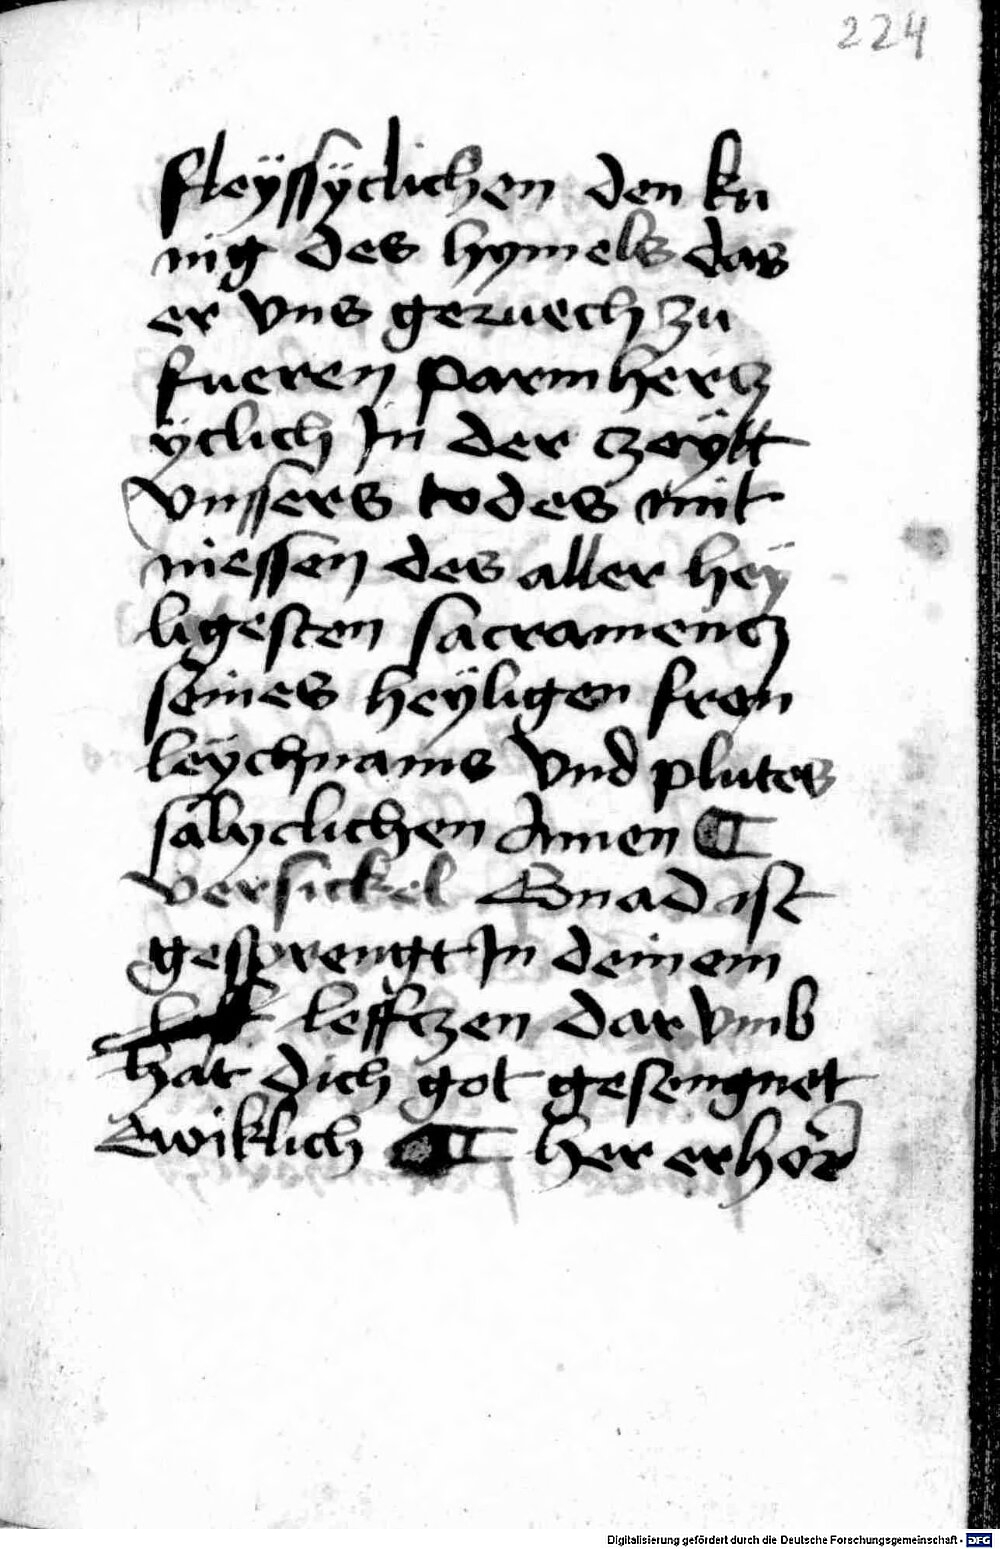 224
fleÿssÿclichen den ku
nig des hymels das
er vns geruech zu
fueren parmhercz
ÿclich In der czeÿtt
vnssers todes mit
niessen des aller heÿ
ligesten sacramencz
seines heÿligen fron
leÿchnams vnd plutes
sälyclichen Amen ¶
versickel Gnad ist
gesprengt In deinem
leffczen dar vmb
hat dich got gesengnet
Ewiklich ¶ her erhör
Digitalisierung gefördert durch die Deutsche Forschungsgemeinschaft - DFG